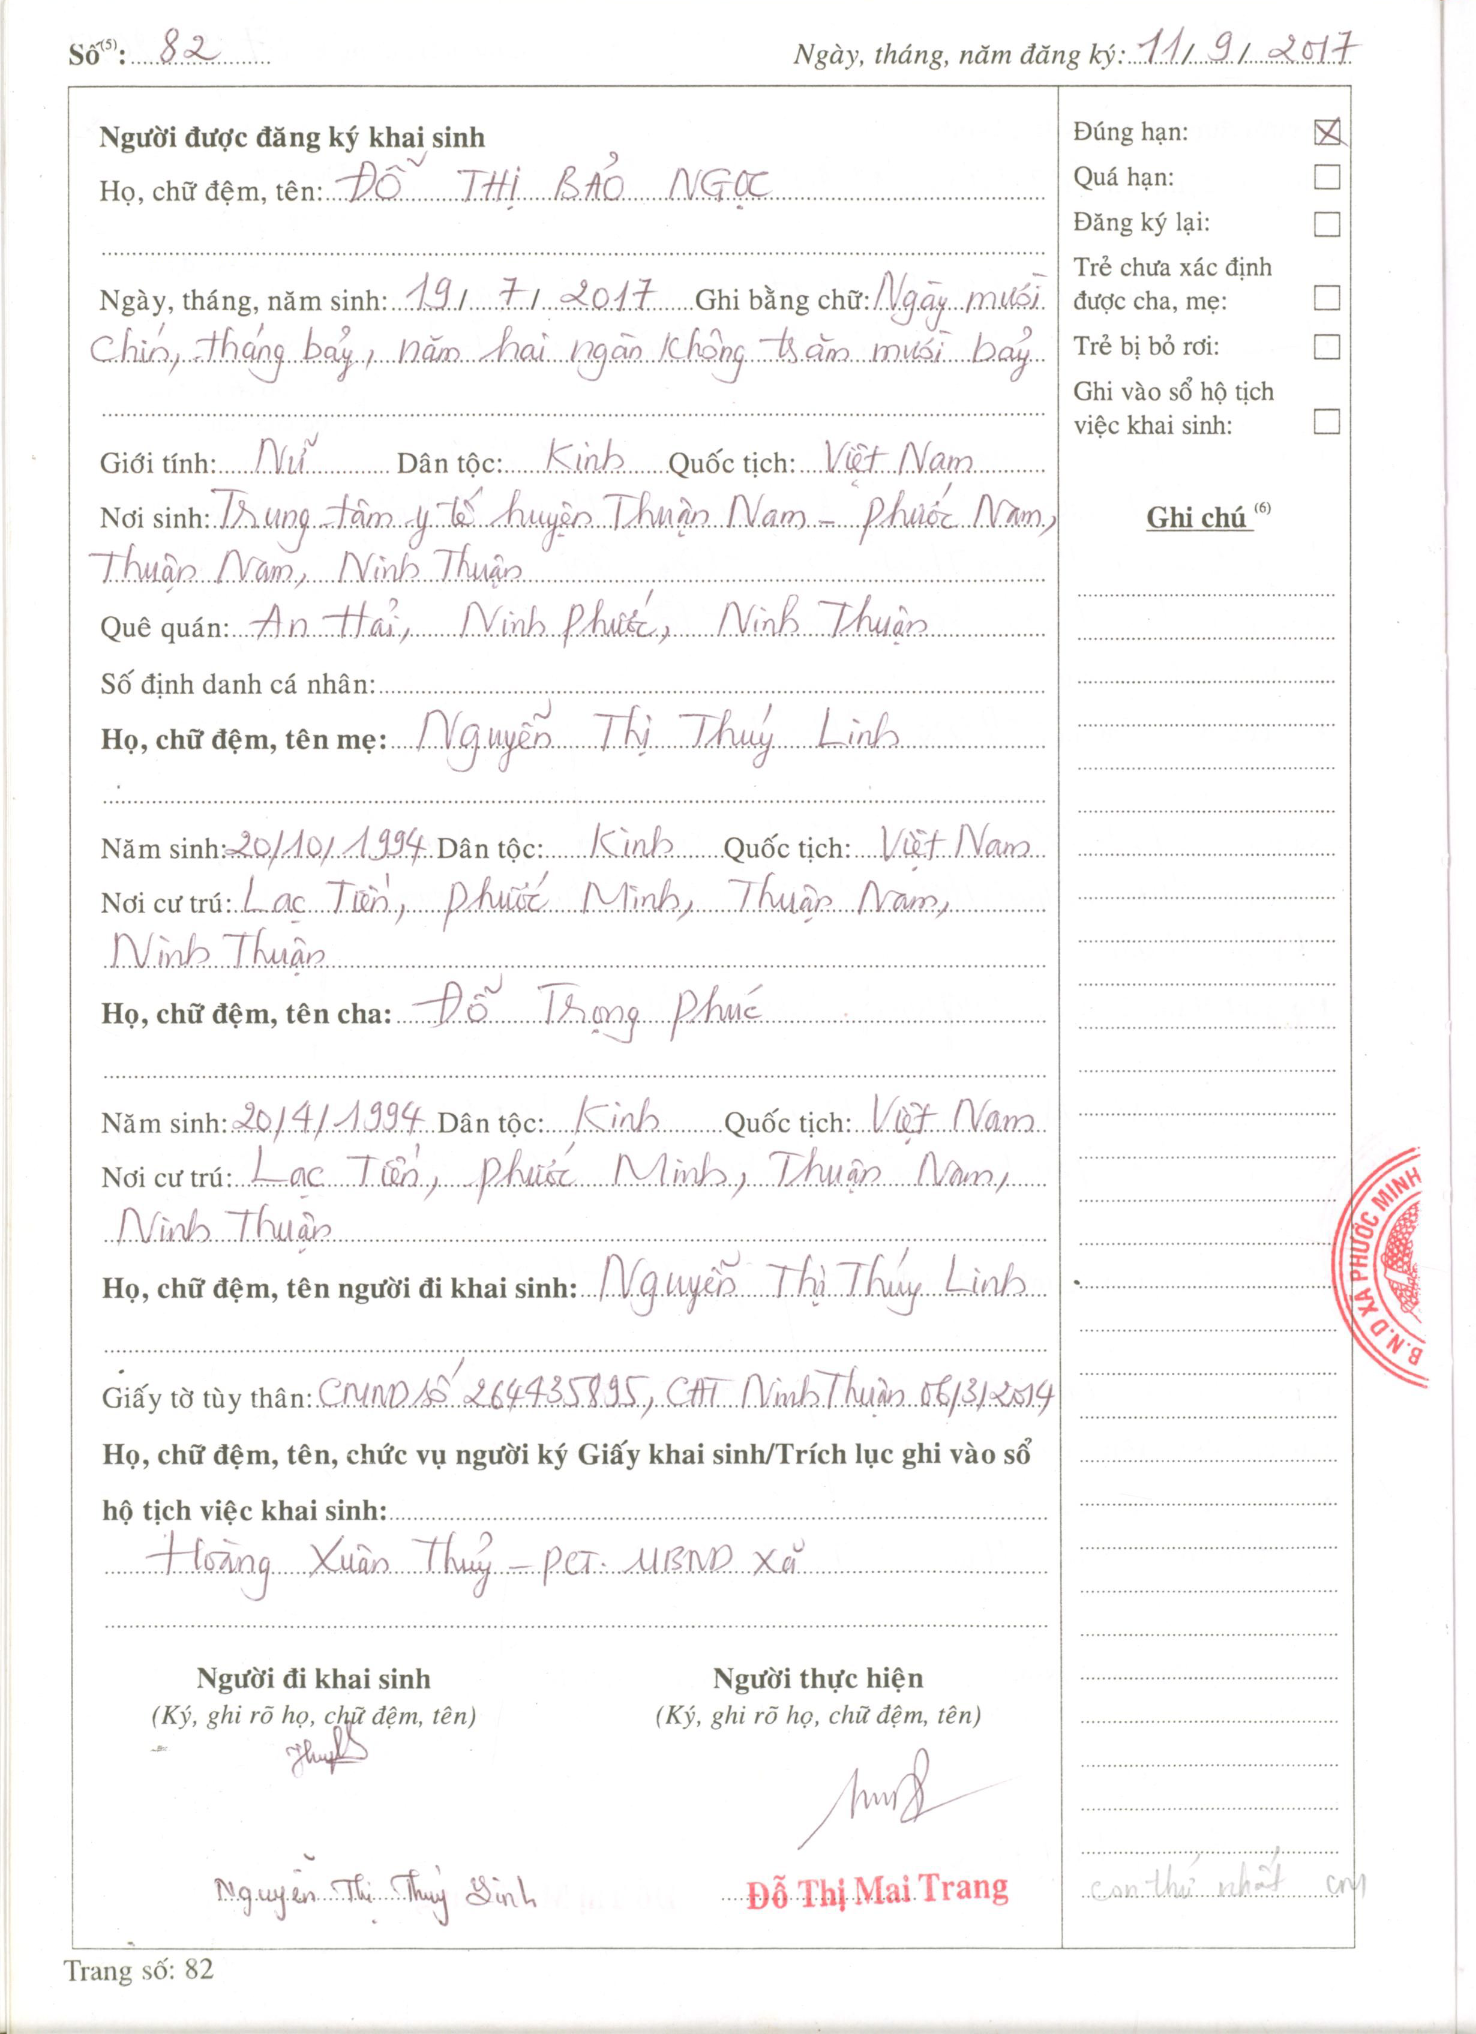 Số(5): 82
Ngày, tháng, năm đăng ký: 11/ 9/ 2017
Người được đăng ký khai sinh
Họ, chữ đệm, tên: ĐỖ THỊ BẢO NGỌC
Ngày, tháng, năm sinh: 19/ 7/ 2017 Ghi bằng chữ: Ngày mười
chín, tháng bảy, năm hai ngàn không trăm mười bảy
Giới tính: Nữ Dân tộc: Kinh Quốc tịch: Việt Nam
Nơi sinh: Trung tâm y tế huyện Thuận Nam - Phước Nam,
Thuận Nam, Ninh Thuận
Quê quán: An Hải, Ninh Phước, Ninh Thuận
Số định danh cá nhân:
Họ, chữ đệm, tên mẹ: Nguyễn Thị Thúy Linh
Năm sinh: 20/10/1994 Dân tộc: Kinh Quốc tịch: Việt Nam
Nơi cư trú: Lạc Tiến, Phước Minh, Thuận Nam,
Ninh Thuận
Họ, chữ đệm, tên cha: Đỗ Trọng Phúc
Năm sinh: 20/4/1994 Dân tộc: Kinh Quốc tịch: Việt Nam
Nơi cư trú: Lạc Tiến, Phước Minh, Thuận Nam,
Ninh Thuận
Họ, chữ đệm, tên người đi khai sinh: Nguyễn Thị Thúy Linh
Giấy tờ tùy thân: CMND số 264435895, CAT Ninh Thuận 06/3/2014
Họ, chữ đệm, tên, chức vụ người ký Giấy khai sinh/Trích lục ghi vào sổ
hộ tịch việc khai sinh:
Hoàng Xuân Thủy - PCT. UBND xã
Người đi khai sinh
(Ký, ghi rõ họ, chữ đệm, tên)
Nguyễn Thị Thúy Linh
Người thực hiện
(Ký, ghi rõ họ, chữ đệm, tên)
Đỗ Thị Mai Trang
Đúng hạn: ☒
Quá hạn: ☐
Đăng ký lại: ☐
Trẻ chưa xác định
được cha, mẹ: ☐
Trẻ bị bỏ rơi: ☐
Ghi vào sổ hộ tịch
việc khai sinh: ☐
Ghi chú (6)
B.N.D XÃ PHƯỚC MINH
con thứ nhất
Trang số: 82